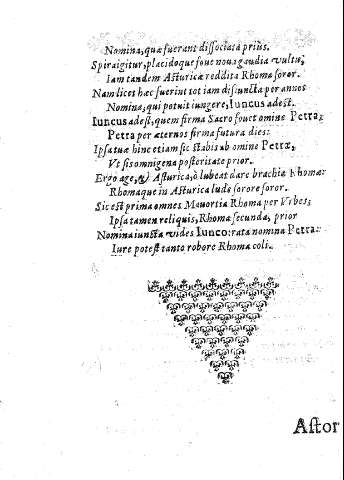 Nomina, quæ fuerant dissociata priùs.
Spiraigitur, placidoque foue noua gaudia vultu,
Iam tandem Asturica reddita Rhoma soror.
Nam licet hæc fuerint tot iam disiuncta per annes
Nomina, qui potuit iungere, Iuncus adest.
Iuncus adest, quem firma Sacro fouet omine Petra,
Petra per æternos firma futura dies:
Ipsa tuæ hinc etiam sic stabis ab omine Petræ,
Vt sis omnigena posteritate prior.
Ergo age, &) Asturica, ò lubeat dare brachia Rhomæ:
Rhomaque in Asturica lude sorore soror.
Sic est prima omnes Mauortia Rhoma per Vrbes;
Ipsa tamen reliquis, Rhoma secunda, prior
Nomina iuncta vides Iunco: rata nomina Petra:
Iure potest tanto robore Rhoma coli.
Astor